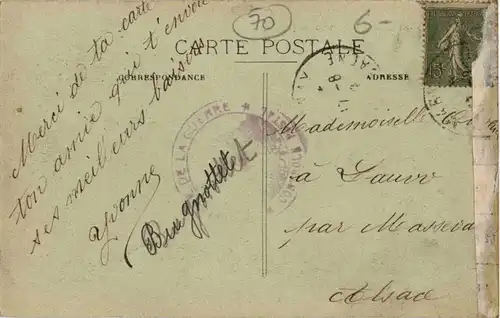 70
6-
CARTE POSTALE
CORRESPONDANCE
ADRESSE
Merci de ta carte
ton amie qui t'envoie
ses meilleurs baisers
Yvonne
DE LA GUERRE
CONTROLE POSTAL
15c
Mademoiselle
à Lauw
par Masevaux
Alsace